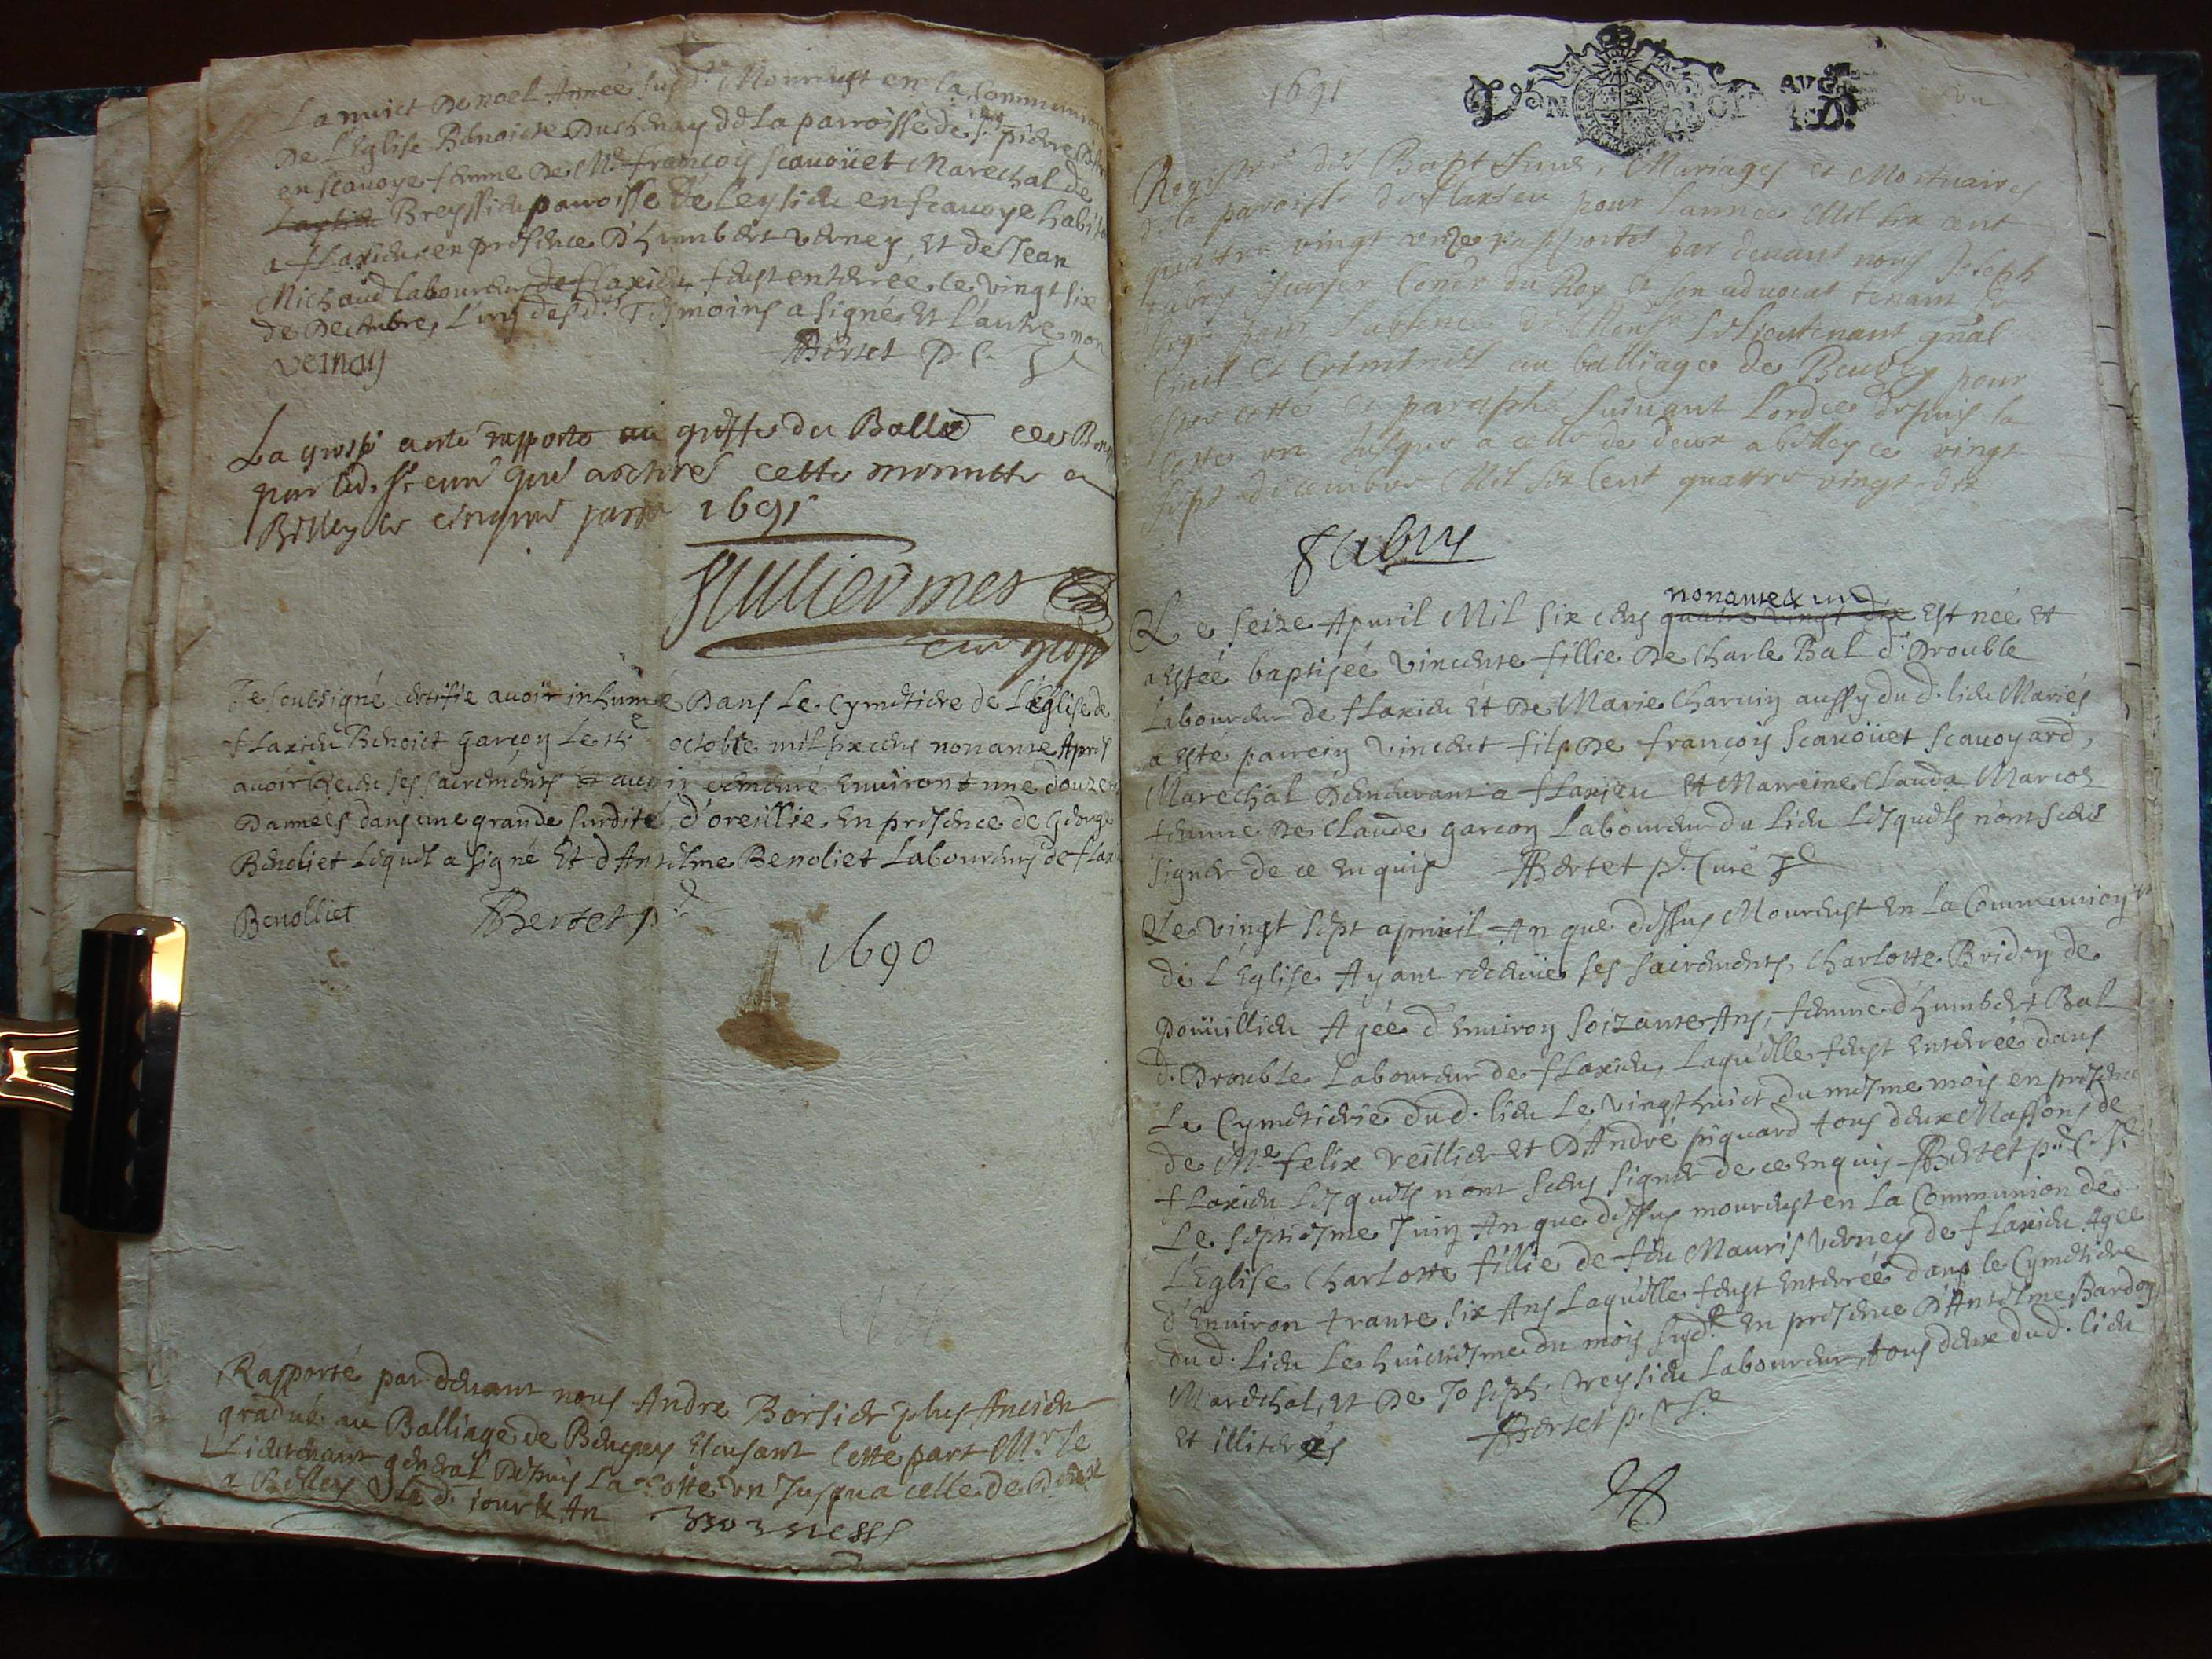 La nuict De noel Année susd.te Mourust en la Communion
De L'Eglise Benoicte Duchenay dd La parroisse de s.t pierre
en scauoye femme De M.e françois scauoüet Marechal de
Breyssieu parroisse De Leysieu en scauoye habit
a fLaxieu en presence D'humbert verney, Et de Jean
Michaud Laboureurs de fLaxieu, feust enterrée le vingt six
de Decembre, L'ung desd.ts Tesmoins a signé Et L'autre non
vernay Bertet
La grosse a esté rapporté au greffe du Balle
par led. sr curé qui a cette minutte
Belley le cinquie 1691
Je soubsigné certifie auoir inhumé Dans Le Cymetiere de L'Eglise de
fLaxieu Benoict garçon Le octobre mil six cens nonante Apres
auoir Receu ses sacrements et auoir demeuré Enuiront une douzen
D'années dans une grande surdité d'oreillie. En presence de George
Benoliet Lequel a signé Et d'Antelme Benoliet Laboureurs de fLax
Benolliet Bertet p.
1690
Rapporté par deuant nous Andre Borsier plus Ancien
gradué au Balliage de Beugey Cette part Mr Le
Lieutenant general Depuis La Cotte un Jusqua celle de Deux
a Belley Le d. iour & An
1691
Registre des Baptesmes, Mariages et Mortuaires
de la paroisse de flaxieu pour Lannée Mil six cent
quattre vingt unze rapportés par deuant nous Joseph
fabry Escuyer Coner du Roy et son aduocat tenant le
siege pour Labsence de Monsr Le Lieutenant gñal
Ciuil Et Criminel au balliage de Beugey pour
estre cotté et paraphé suiuant Lordre depuis la
Cotte un Jusque a celle de deux a belley ce vingt
sept decembre Mil six Cent quattre vingt dix
fabry
nonante & un
Le seize Apuril Mil six cens quatre vingt dix Est née Et
a Estée baptisée vincente fillie De Charle Bal d. Drouble
Laboureur de fLaxieu Et De Marie Charuin aussy dud. lieu Mariés
a Esté pairein vincent fils De françois scauoüet scauoyard,
Marechal Demeurant a fLaxieu Et Marreine Clauda Marcoz
femme De Claude garcon Laboureur du Lieu Lesquels n'ont sceu
signer de ce Enquis Bertet p. Curé
Le vingt sept apuril An que dessus Mourust En La Communion
de L'Eglise Ayant receüe ses sacrements, Charlotte Bridon de
poüillieu Agée d'Enuiron soizante Ans, femme d'humbert Bal
d. Drouble Laboureur de fLaxieu, Laquelle feust Enterrée dans
Le Cymetiere dud. lieu Le vingt huict du mesme mois en presence
de M.e felix veillier Et D'André piquard tous deux Massons de
fLaxieu Lesquels n'ont sceu signer de ce Enquis Bertet
Le septiesme Juin An que dessus mourust en La Communion de
L'Eglise Charlotte fillie de feu Mauris verney de fLaxieu Agée
d'Enuiron trante six Ans Laquelle feust Enterrée dans le Cymetiere
dud. Lieu Le huictiesme du mois susd. En presence D'Antelme Bardon
Marechal, Et De Joseph Creysieu Laboureur tous deux dud. Lieu
Et illiterés Bertet p.